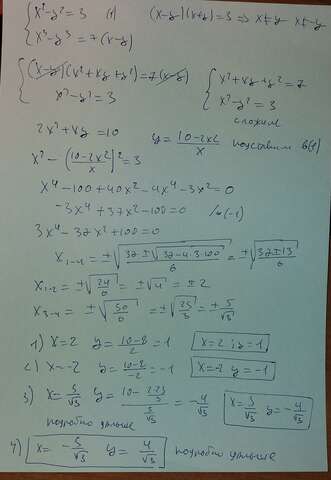 { x²-y²=3 (1) (x-y)(x+y)=3 ⇒ x≠y x≠-y
{ x³-y³=7(x-y)
{ (x-y)(x²+xy+y²)=7(x-y) { x²+xy+y²=7
{ x²-y²=3 { x²-y²=3
сложим
2x²+xy=10 y=\frac{10-2x²}{x} подставим в(1)
x²-(\frac{10-2x²}{x})²=3
x⁴-100+40x²-4x⁴-3x²=0
-3x⁴+37x²-100=0 /·(-1)
3x⁴-37x²+100=0
x₁₋₄=±√\frac{37±√37-4·3·100}{6}=±√\frac{37±13}{6}
x₁₋₂=±√\frac{24}{6}=±√4=±2
x₃₋₄=±√\frac{50}{6}=±√\frac{25}{3}=±\frac{5}{√3}
1) x=2 y=\frac{10-8}{2}=1 x=2; y=1
2) x=-2 y=\frac{10-8}{-2}=-1 x=-2 y=-1
3) x=\frac{5}{√3} y=\frac{10-\frac{2·25}{3}}{\frac{5}{√3}}=-\frac{4}{√3} x=\frac{5}{√3} y=-\frac{4}{√3}
подробно
4) x=-\frac{5}{√3} y=\frac{4}{√3} подробно